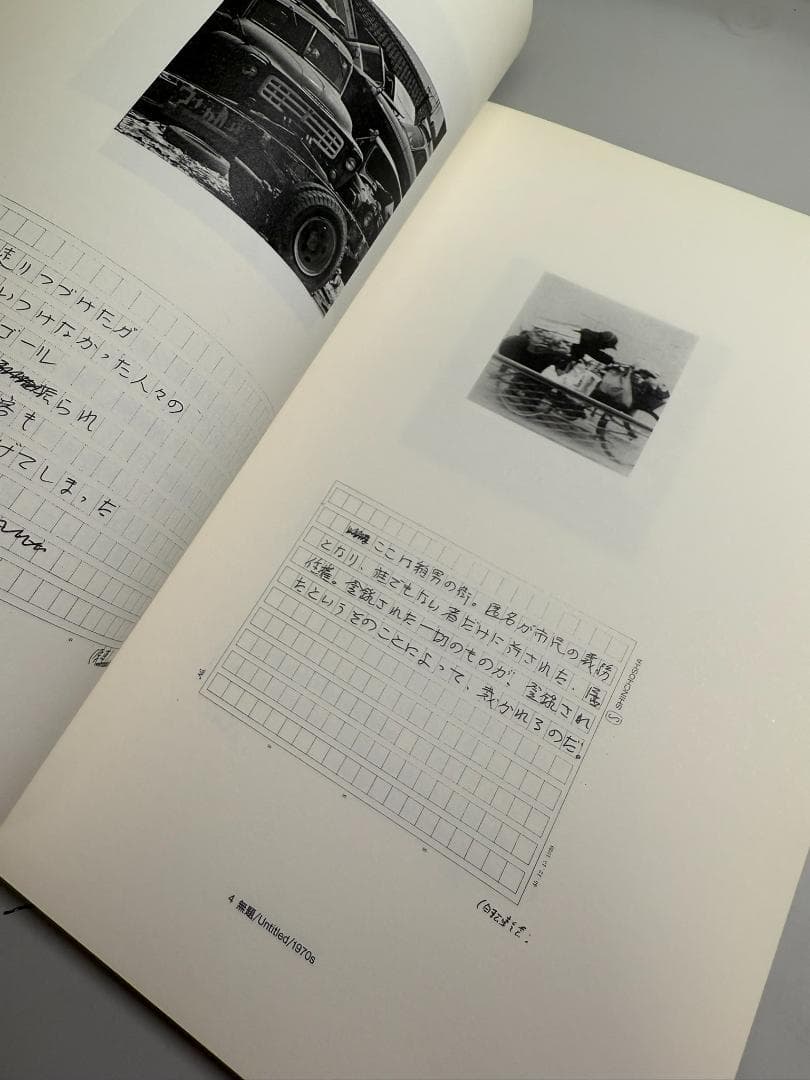 走りつづけたが
いつけなかった人々の
ゴール
られ
も
げてしまった
ここは箱男の街。匿名が市民の義務
となり、誰でもない者だけに許された、居
住権。登録された一切のものが、登録され
たというそのことによって、裁かれるのだ。
SHINCHOSHA
4 無題/Untitled/1970s